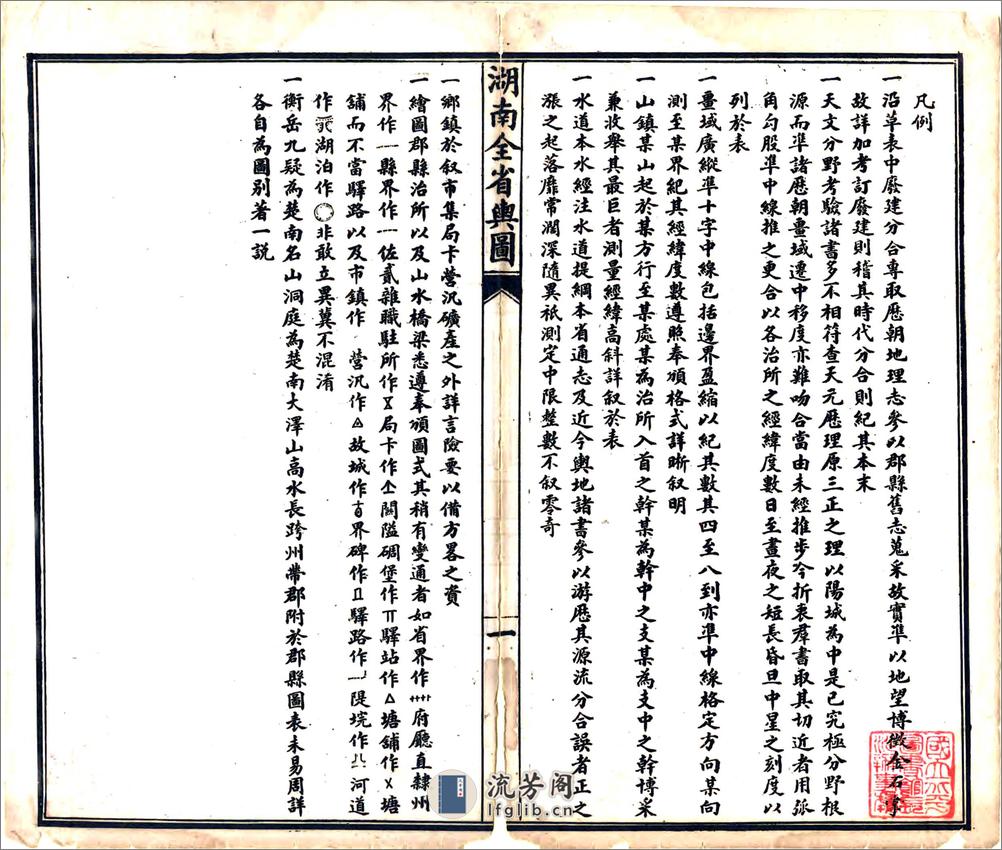 凡例
一沿革表中廢建分合專取歷朝地理志參以郡縣舊志蒐采故實準以地望博徵金石家
故詳加考訂廢建則稽其時代分合則紀其本末
一天文分野考驗諸書多不相符查天元歷理原三正之理以陽城為中是已究極分野根
源而準諸歷朝畺域遷中移度亦難吻合當由未經推步今折衷羣書取其切近者用弧
角勾股準中線推之更合以各治所之經緯度數日至晝夜之短長昏旦中星之刻度以
列於表
一畺域廣縱準十字中線包括邊界盈縮以紀其數其四至八到亦準中線格定方向某向
測至某界紀其經緯度數遵照奉頒格式詳晰叙明
一山鎮某山起於某方行至某處某為治所入首之幹某為幹中之支某為支中之幹博采
兼收舉其最巨者測量經緯高斜詳叙於表
一水道本水經注水道提綱本省通志及近今輿地諸書參以游歷其源流分合誤者正之
漲之起落靡常濶深隨異祇測定中限整數不叙零奇
湖南全省輿圖
一
一鄉鎮於叙市集局卡營汛礦產之外詳言險要以備方畧之資
一繪圖郡縣治所以及山水橋梁悉遵奉頒圖式其稍有變通者如省界作 府廳直隸州
界作 縣界作 佐貳雜職駐所作 局卡作 關隘碉堡作 驛站作 塘舖作 塘
舖而不當驛路以及市鎮作 營汛作 故城作 界碑作 驛路作 隄垸作 河道
作 湖泊作 非敢立異冀不混淆
一衡岳九疑為楚南名山洞庭為楚南大澤山高水長跨州帶郡附於郡縣圖表未易周詳
各自為圖別著一說
流芳阁
lfglib.cn